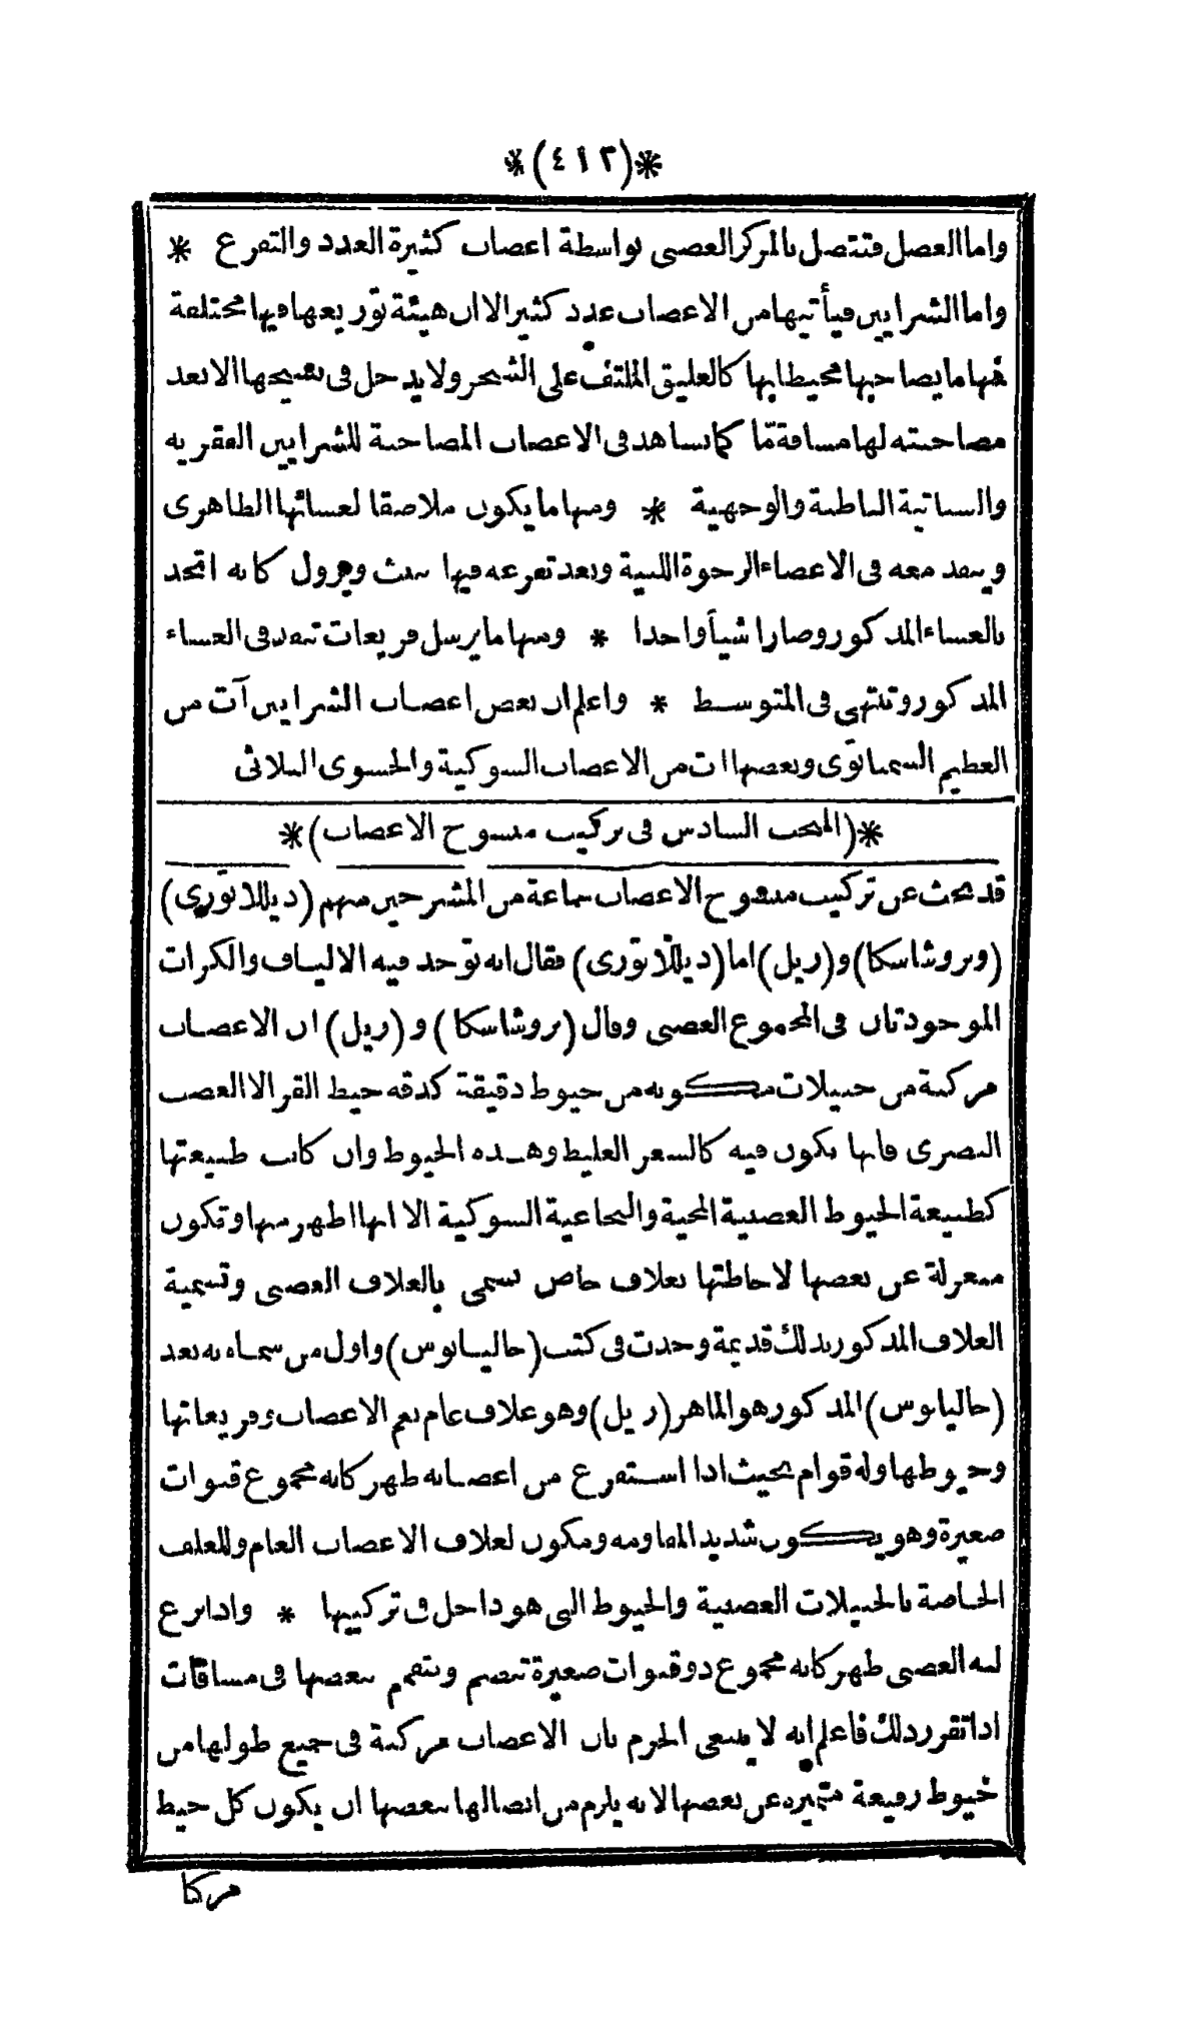 *(٤١٢)*
واما العضل فتتصل بالمركز العصبى بواسطة اعصاب كثيرة العدد والتفرع *
واما الشرايين فيأتيها من الاعصاب عدد كثير الا ان هيئة توزيعها فيها مختلفة
فمنها ما يصاحبها محيطا بها كالعليق الملتف على الشجر ولا يدخل فى نسيجها الا بعد
مصاحبته لها مسافة مّا كما يشاهد فى الاعصاب المصاحبة للشرايين الفقرية
والسباتية الباطنة والوجهية * ومنها ما يكون ملاصقا لغشائها الظاهرى
وينفذ معه فى الاعضاء الرخوة اللينة وبعد تفرعه فيها ينبث ويزول كانه اتحد
بالغشاء المذكور وصارا شيأ واحدا * ومنها ما يرسل فريعات تنفذ فى الغشاء
المذكور وتنتهى فى المتوسط * واعلم ان بعض اعصاب الشرايين آت من
العظيم السمباتوى وبعضها ات من الاعصاب الشوكية والحشوى الثلاثى
*(المبحث السادس فى تركيب منسوج الاعصاب)*
قد بحث عن تركيب منسوج الاعصاب جماعة من المشرحين منهم (ديللاتورى)
(وبروشاسكا) و(ريل) اما (ديللاتورى) فقال انه توجد فيه الالياف والكرات
الموجودتان فى المجموع العصبى وقال (بروشاسكا) و (ريل) ان الاعصاب
مركبة من حبيلات مكونه من خيوط دقيقة كدقه خيط القز الا العصب
البصرى فانها تكون فيه كالشعر الغليظ وهذه الخيوط وان كانت طبيعتها
كطبيعة الخيوط العصبية المخية والنخاعية الشوكية الا انها اظهر منها وتكون
منعزلة عن بعضها لاحاطتها بغلاف خاص تسمى بالغلاف العصبى وتسمية
الغلاف المذكور بذلك قديمة وجدت فى كتب (جاليانوس) واول من سماه به بعد
(جاليانوس) المذكور هو الماهر (ريل) وهو غلاف عام يعم الاعصاب وفريعاتها
وخيوطها وله قوام بحيث اذا استفرغ من اعصابه ظهر كانه مجموع قنوات
صغيرة وهو يكون شديد المقاومه ومكون لغلاف الاعصاب العام وللغلف
الخاصة بالحبيلات العصبية والخيوط التى هو داخل فى تركيبها * واذا نزع
لبه العصبى ظهر كانه مجموع ذو قنوات صغيرة تنضم وتتفمم ببعضها فى مسافات
اذا تقرر ذلك فاعلم انه لا ينبغى الجزم بان الاعصاب مركبة فى جميع طولها من
خيوط رفيعة متميزه عن بعضها لانه يلزم من اتصالها ببعضها ان يكون كل خيط
مركبا